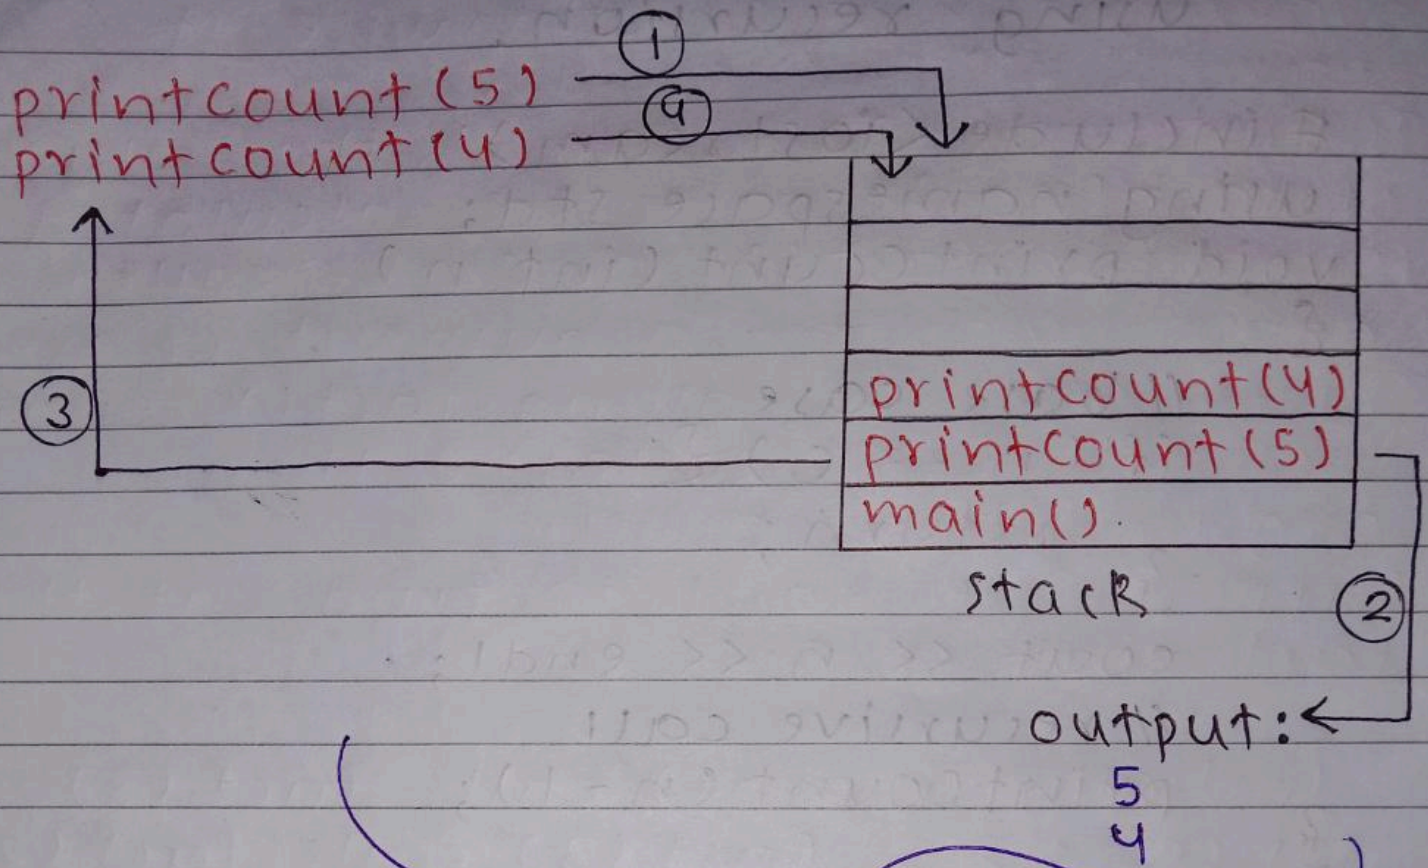 ①
printcount(5)
④
printcount(4)
③
printcount(4)
printcount(5)
main().
stack
②
output:
5
4